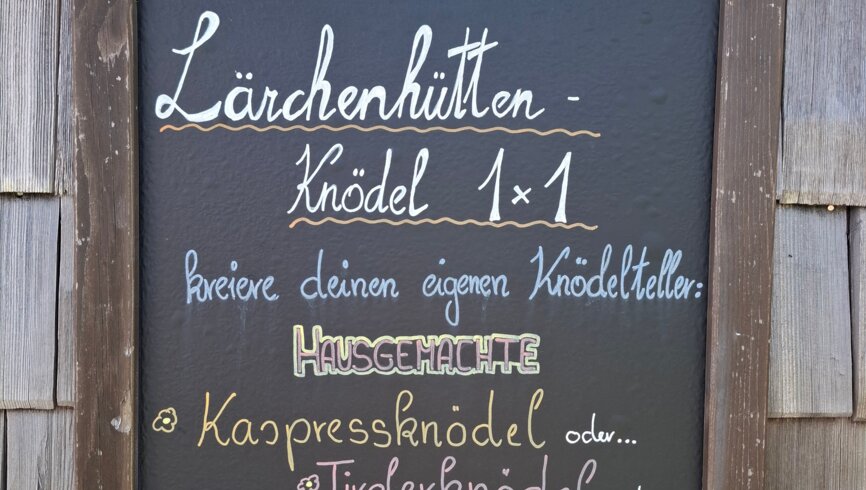 Lärchenhütten -
Knödel 1x1
kreiere deinen eigenen Knödelteller:
HAUSGEMACHTE
Kaspressknödel oder...
Tirolerknödel